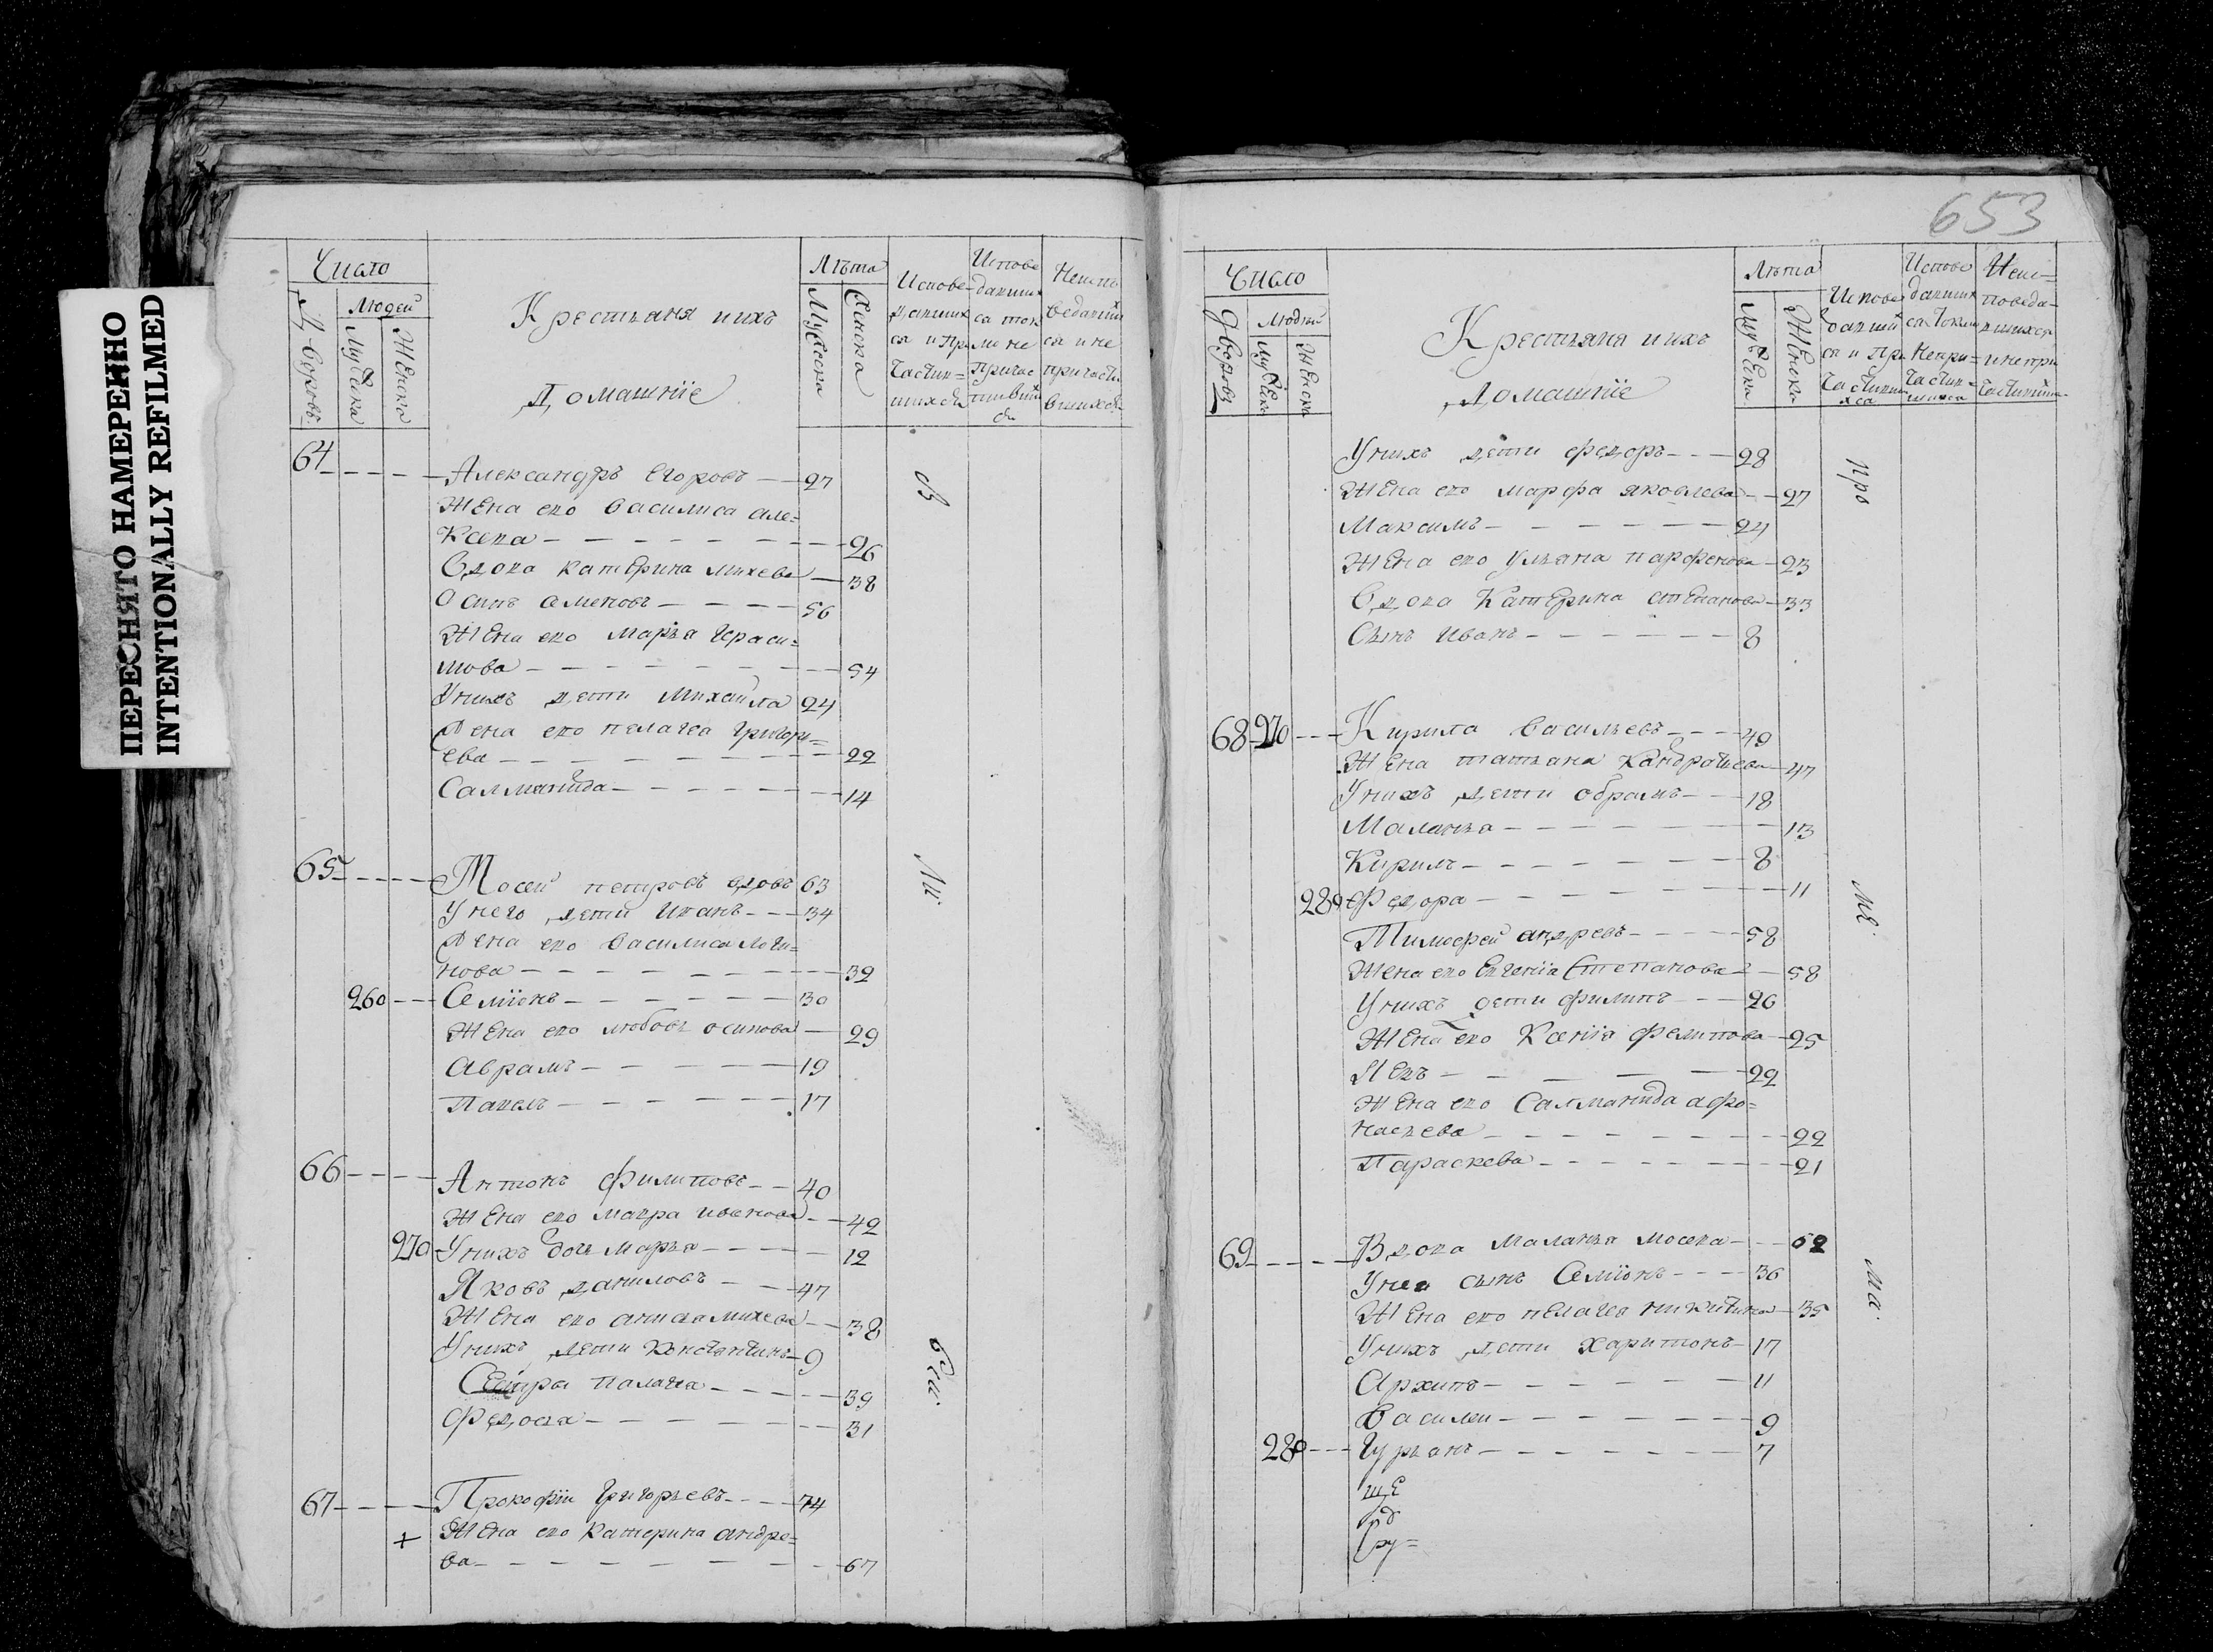 ПЕРЕСНЯТО НАМЕРЕННО
INTENTIONALLY REFILMED
Число
Людей
Дворовъ
Мужеска
Женска
Крестьяня ихъ
Домашнїе
Лѣта
Мужеска
Женска
Испове-
давших
ся и При
частив=
шихся
Испове
давших
ся ток
мо не
Причас
тивших
ся
Неиспо
ведавших
ся и не
причасти
вшихся
64 Александръ Егоровъ 27
Жена ево Василиса Але=
ксева 26
Вдова Катерина Михева 38
Осипъ Семеновъ 56
Жена ево Марья Гераси=
мова 54
У нихъ дети Михайла 24
Жена ево Пелагея Григорь=
ева 22
Саламанида 14
65 Мосей Петровъ вдовъ 63
У него дети Иванъ 34
Жена ево Василиса Логи=
нова 32
260 Семїонъ 30
Жена ево Любовь Осипова 29
Аврамъ 19
Павелъ 17
66 Антонъ Филиповъ 40
Жена ево Мавра Иванова 42
270 У нихъ дочь Марья 12
Яковъ Даниловъ 47
Жена ево Анна Михева 38
У нихъ дети Константинъ 9
Сестра Палагея 39
Федосья 31
67 Прокофїи Григорьевъ 74
+ Жена ево Катерина Андре=
ва 67
В
Ли.
бди.
653
Число
Людей
Дворовъ
Мужеска
Женска
Крестьяня ихъ
Домашнїе
Лѣта
Мужеска
Женска
Испове
давши
ся и При
частивши
хся
Испове
давших
ся токмо
Непри=
частив=
шихся
Неис=
поведа-
вшихся
и непри
частивших
У нихъ дети Федоръ 28
Жена ево Марфа Яковлева 27
Максимъ 24
Жена ево Ульяна Парфенова 23
Вдова Катерина Степанова 33
Сынъ Иванъ 8
68 270 Кирила Васильевъ 49
Жена Татьяна Кандратьева 47
У нихъ дети Обрамъ 18
Маланья 13
Кирилъ 8
280 Федора 11
Тимофей Андревъ 58
Жена ево Евгенїя Степанова 58
У нихъ дети Филипъ 26
Жена ево Ксенїя Фелипова 25
Левъ 22
Жена ево Саламанида Афо=
насьева 22
Параскева 21
69 Вдова Маланья Мосева 62
У нея сынъ Семїонъ 36
Жена ево Пелагея Никитина 35
У нихъ дети Харитонъ 17
Архипъ 11
Василеи 9
280 Гурьянъ 7
ще
ру=
про
ме.
ма.